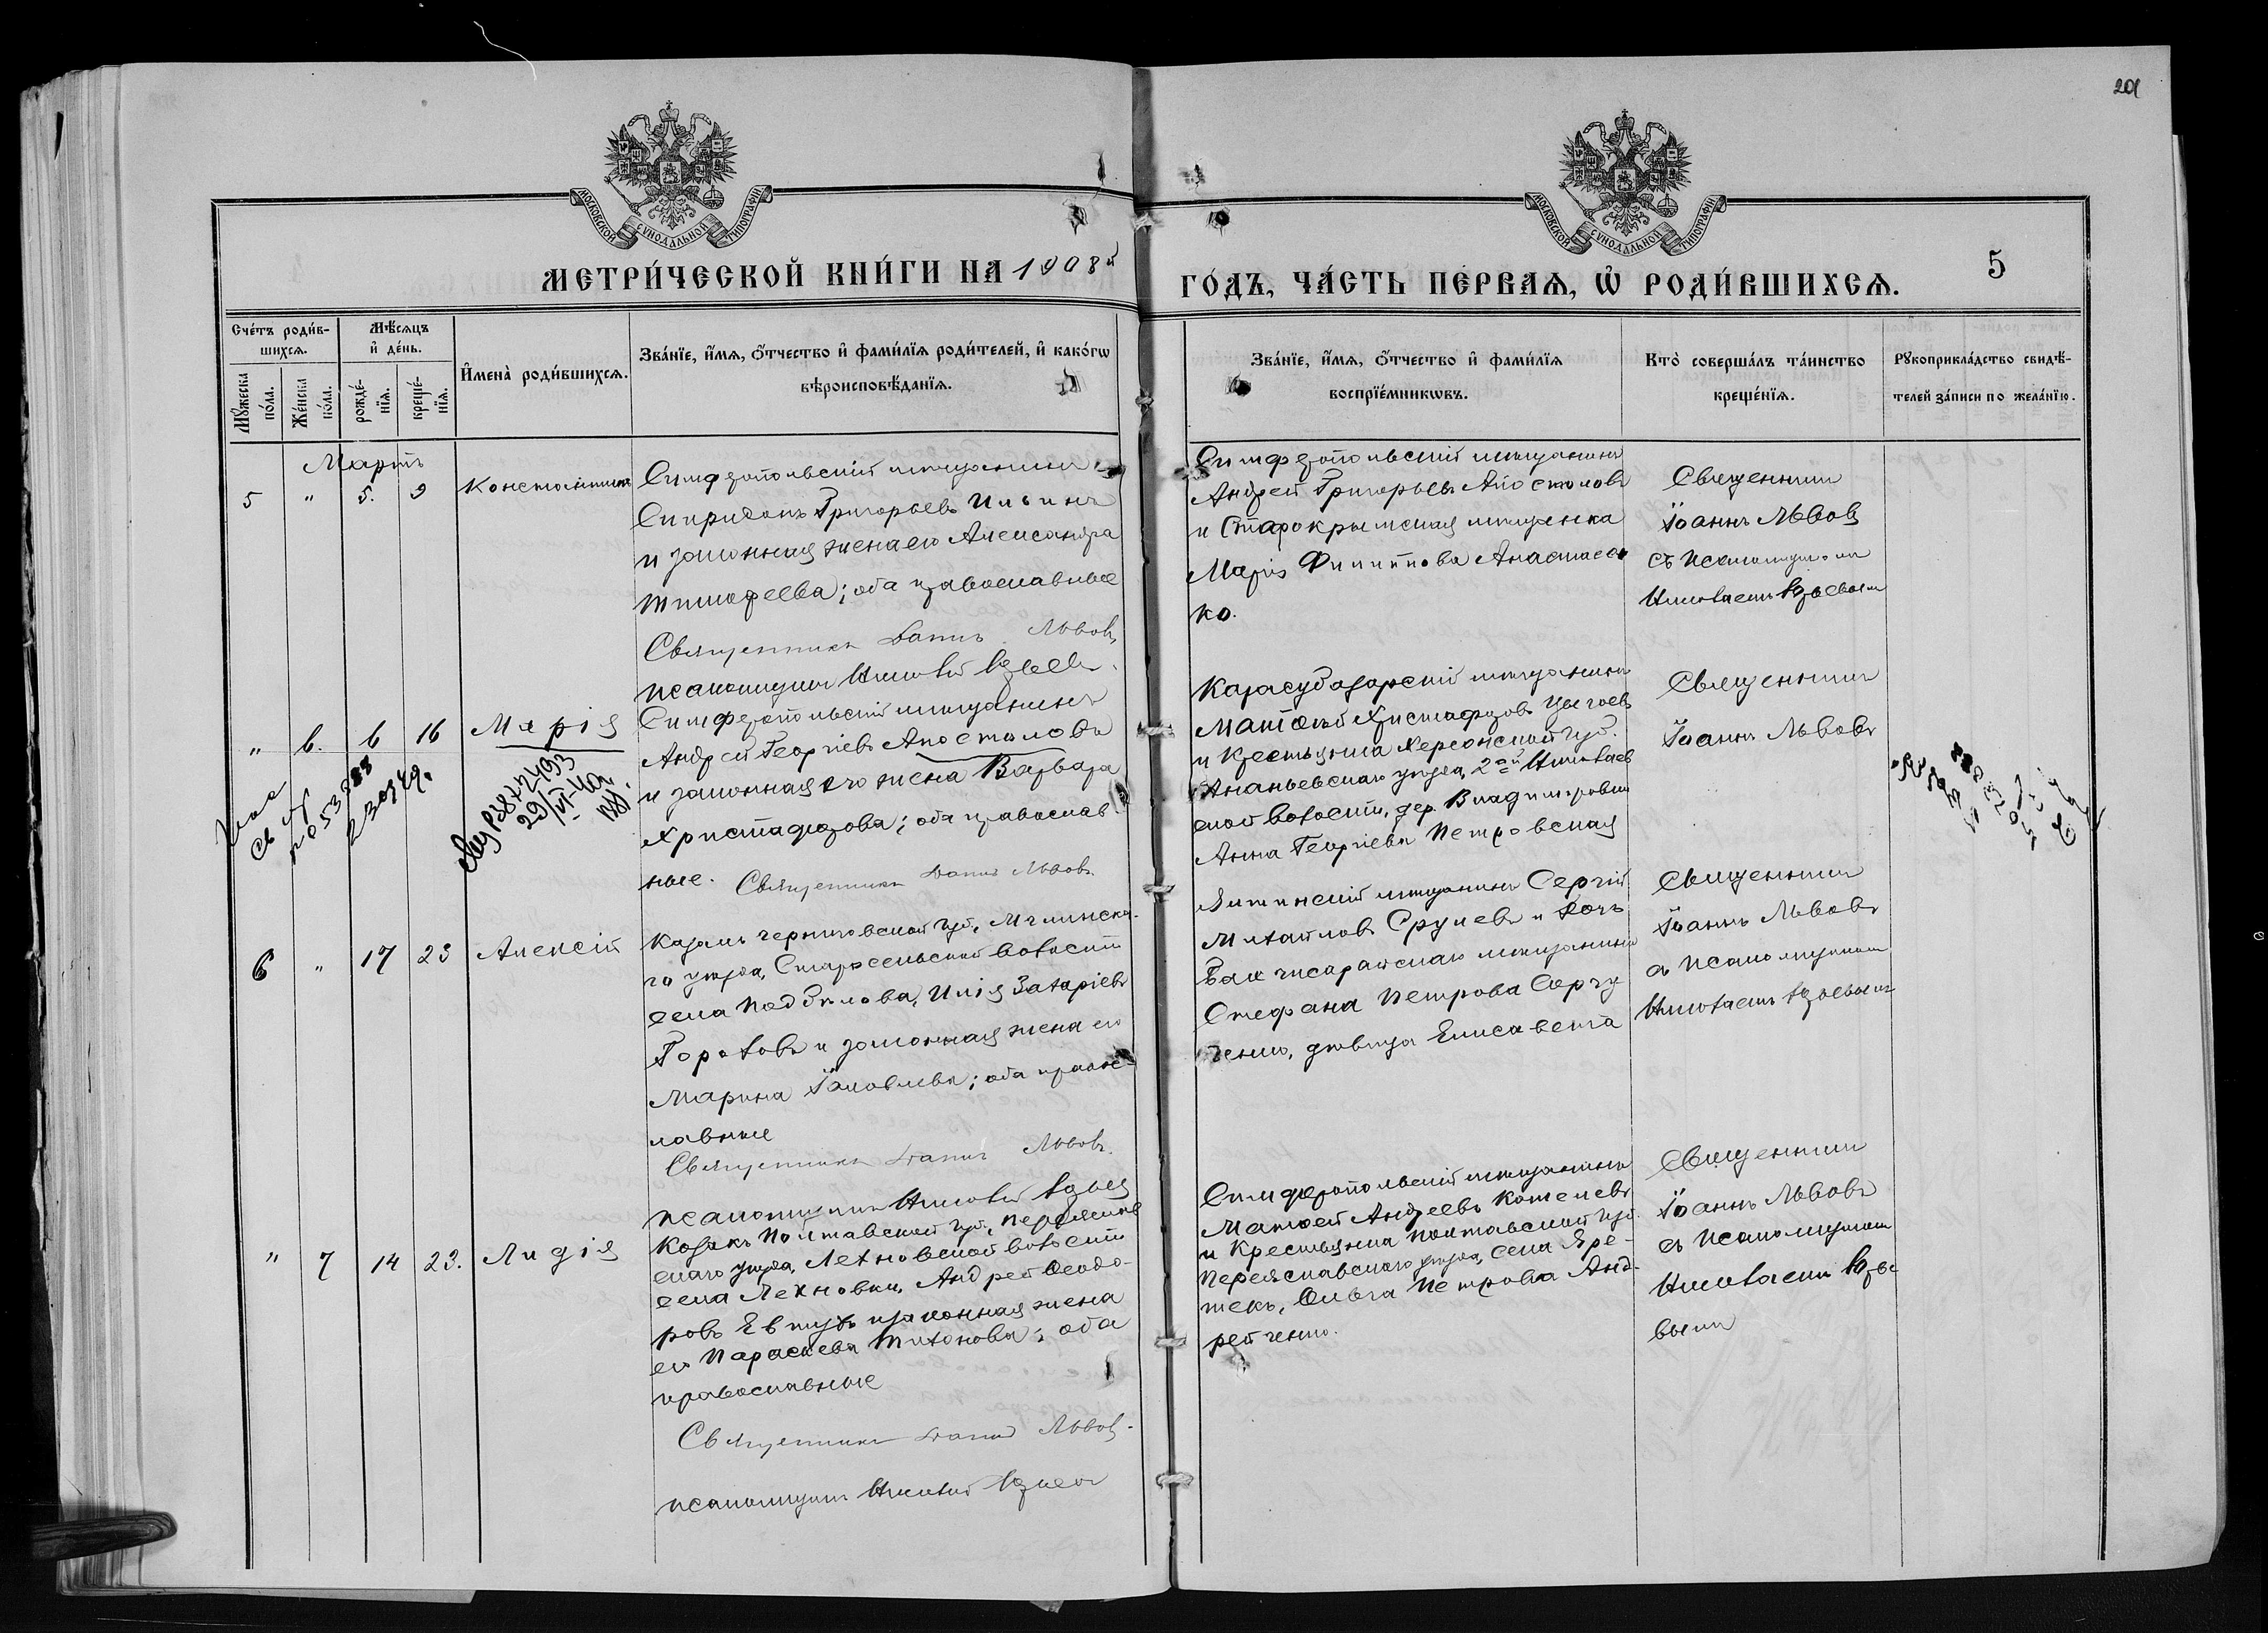 201
МОСКОВСКОЙ СѴНОДАЛЬНОЙ ТИПОГРАФІИ
МОСКОВСКОЙ СѴНОДАЛЬНОЙ ТИПОГРАФІИ
МЕТРИ́ЧЕСКОЙ КНИ́ГИ НА 1908й
ГО́ДЪ, ЧА́СТЬ ПЕ́РВАѦ, Ѽ РОДИ́ВШИХСѦ.
5
Сче́тъ роди́в-
шихсѧ.
Мꙋ́жеска
по́ла.
Же́нска
по́ла.
Мѣ́сѧцъ
и҆ де́нь.
рожде́-
нїѧ.
креще́-
нїѧ.
И҆мена̀ роди́вшихсѧ.
Зва́нїе, и҆́мѧ, ѻ҆́тчество и҆ фами́лїѧ роди́телей, и҆ како́гѡ
вѣроисповѣ́данїѧ.
Зва́нїе, и҆́мѧ, ѻ҆́тчество и҆ фами́лїѧ
воспрїе́мникѡвъ.
Кто̀ соверша́лъ та́инство
креще́нїѧ.
Рꙋкоприкла́дство свидѣ́-
телей за́писи по жела́нїю.
Мартъ
5 " 5. 9 Константинъ
Симферопольскій мѣщанинъ
Спиридонъ Григорьевъ Ильинъ
и законная жена его Александра
Тимофеева; оба православные
Священникъ Іоаннъ Львовъ
псаломщикъ Николай
Симферопольскій мѣщанинъ
Андрей Григорьевъ Апостоловъ
и Старокрымская мѣщанка
Марія Филиппова Анастасен
ко.
Священникъ
Іоаннъ Львовъ
съ псаломщикомъ
Николаемъ
" 6. 6 16 Марія
Симферопольскій мѣщанинъ
Андрей Георгіевъ Апостоловъ
и законная его жена Варвара
Христофорова; оба православ-
ные. Священникъ Іоаннъ Львовъ
Карасубазарскій мѣщанинъ
Матѳей Христофоровъ
и Крестьянка Херсонской губ.
Ананьевскаго уѣзда, 2ой Николаев
ской волости, дер. Владимировки
Анна Георгіева Петровская
Священникъ
Іоаннъ Львовъ
6 " 17 23 Алексій
Казакъ Черниговской губ., Мглинска-
го уѣзда, Старосельской волости
села Поддубова, Илія Захаріевъ
Гороховъ и законная жена его
Марина Іаковлева; оба правос-
лавные
Священникъ Іоаннъ Львовъ.
псаломщикъ Николай
Ялтинскій мѣщанинъ Сергій
Михайловъ и дочь
Бахчисарайскаго мѣщанина
Стефана Петрова
ченко, дѣвица Елисавета
Священникъ
Іоаннъ Львовъ
съ псаломщикомъ
Николаемъ
" 7 14 23. Лидія
Козакъ Полтавской губ., Переяслав
скаго уѣзда, Лехновской волости
села Лехновки, Андрей Ѳеодо-
ровъ Евтухъ и законная жена
его Параскева Тихонова; оба
православные
Священникъ Іоаннъ Львовъ.
псаломщикъ Николай
Симферопольскій мѣщанинъ
Матѳей Андреевъ Кошелевъ
и Крестьянка Полтавской губ.
Переяславскаго уѣзда, села Яре-
текъ, Ольга Петрова Анд-
рейченко.
Священникъ
Іоаннъ Львовъ
съ псаломщикомъ
Николаемъ
вымъ